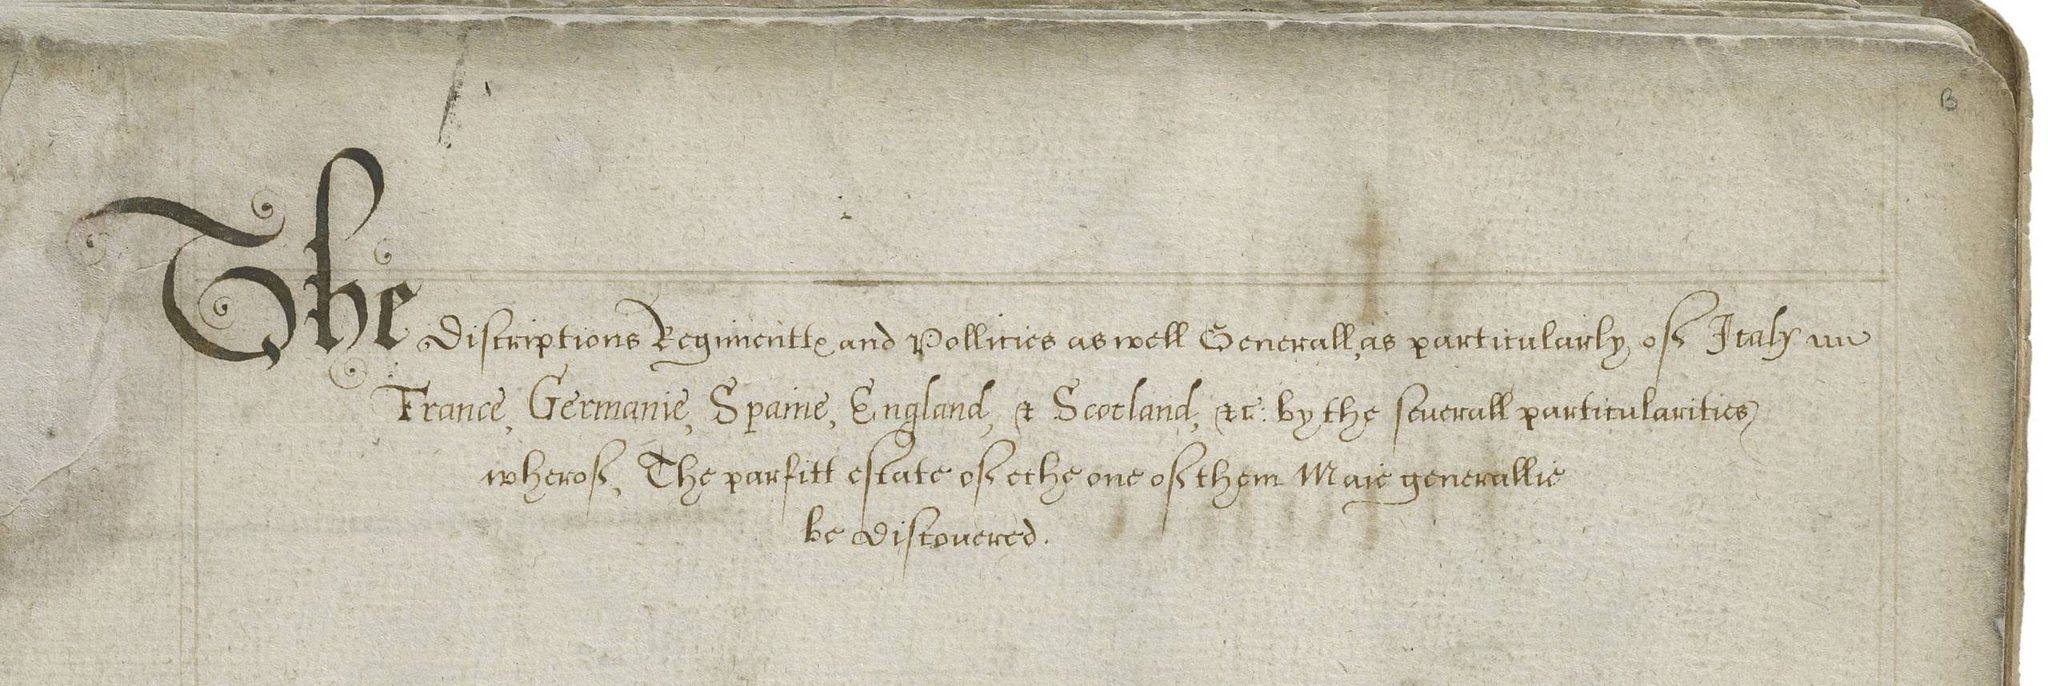 B
The Discriptions Regimentte and Pollicies as well Generall, as particularly of Italy
France, Germanie, Spaine, England, & Scotland, &c: by the seuerall particularities
wherof, The parfitt estate of eche one of them Maie generallie
be discouered.